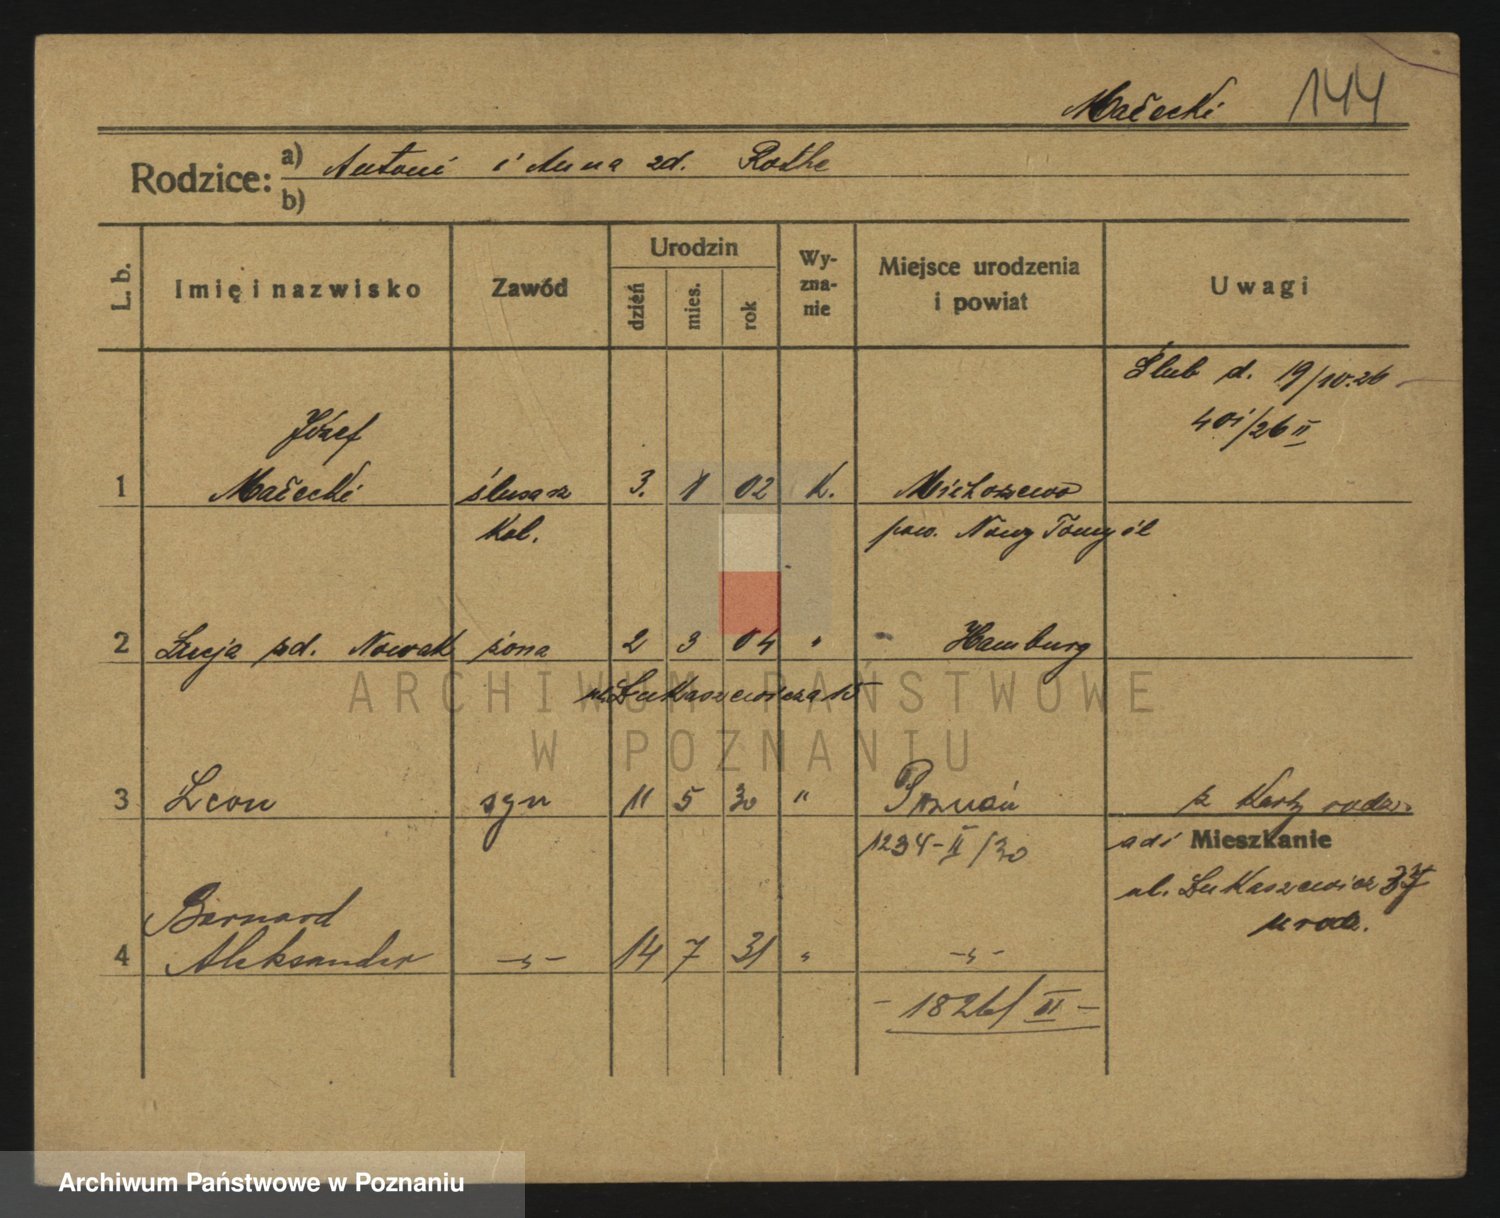 Małecki 144
Rodzice: a) Antoni i Anna zd. Rothe
b)
L. b. Imię i nazwisko Zawód Urodzin dzień mies. rok Wyznanie Miejsce urodzenia i powiat Uwagi
Ślub d. 19/10.26
401/26 II
Józef
1 Małecki ślusarz 3. 1 02 k. Michorzewo
kol. pow. Nowy Tomyśl
2 Łucja zd. Nowak żona 2 3 04 " Hamburg
ul. Łukaszewicza 15
ARCHIWUM PAŃSTWOWE
W POZNANIU
3 Leon syn 11 5 30 " Poznań z karty rodz.
1234-II/30 Mieszkanie
ul. Łukaszewicz 37
urodz.
Bernard
4 Aleksander -"- 14 7 31 " -"-
- 1826/II -
Archiwum Państwowe w Poznaniu